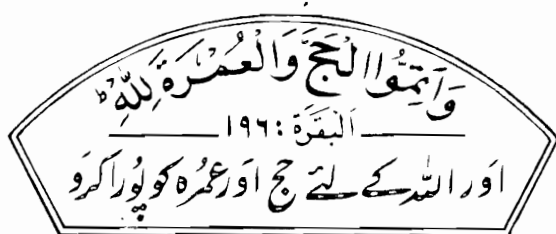 وَاَتِمُّوا الْحَجَّ وَالْعُمْرَةَ لِلّٰهِ ؕ
اَلبَقَرَة : ۱۹٦
اور اللہ کے لئے حج اور عمرہ کو پُورا کرو